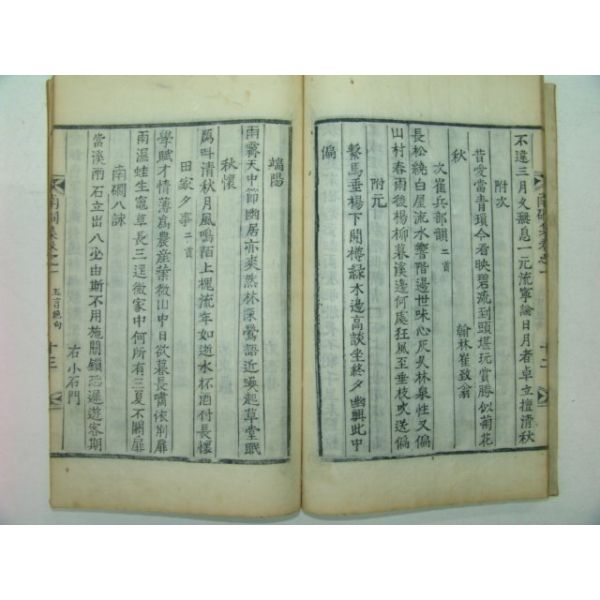 不違三月久無息一元流寧論日月者卓立擅清秋
附次
昔愛當青瑣今看映碧流到頭堪玩賞勝似菊花
秋 翰林崔致翁
次崔兵部韻二首
長松繞白屋流水響階邊世味心灰矣林泉性又偏
山村春雨後楊柳暮溪邊何處狂風至垂枝或送偏
附元
繫馬垂楊下開樽綠水邊高談坐終夕幽興此中
偏
南磵集卷之一
十三
端陽
雨霽天中節幽居亦爽然林深鶯語近喚起草堂眠
秋懷
清秋月風鳴陌上槐流年如逝水杯酒付長懷
田家夕事二首
學賦才情薄爲農産業微山中日欲暮長嘯依荊扉
雨濕蛙生竈草長三逕微家中何所有三夏不關扉
南磵八詠
當溪兩石立出入必由斯不用施關鎖恐遲遊客期
右小石門
南磵集卷之一 五言絶句 十三